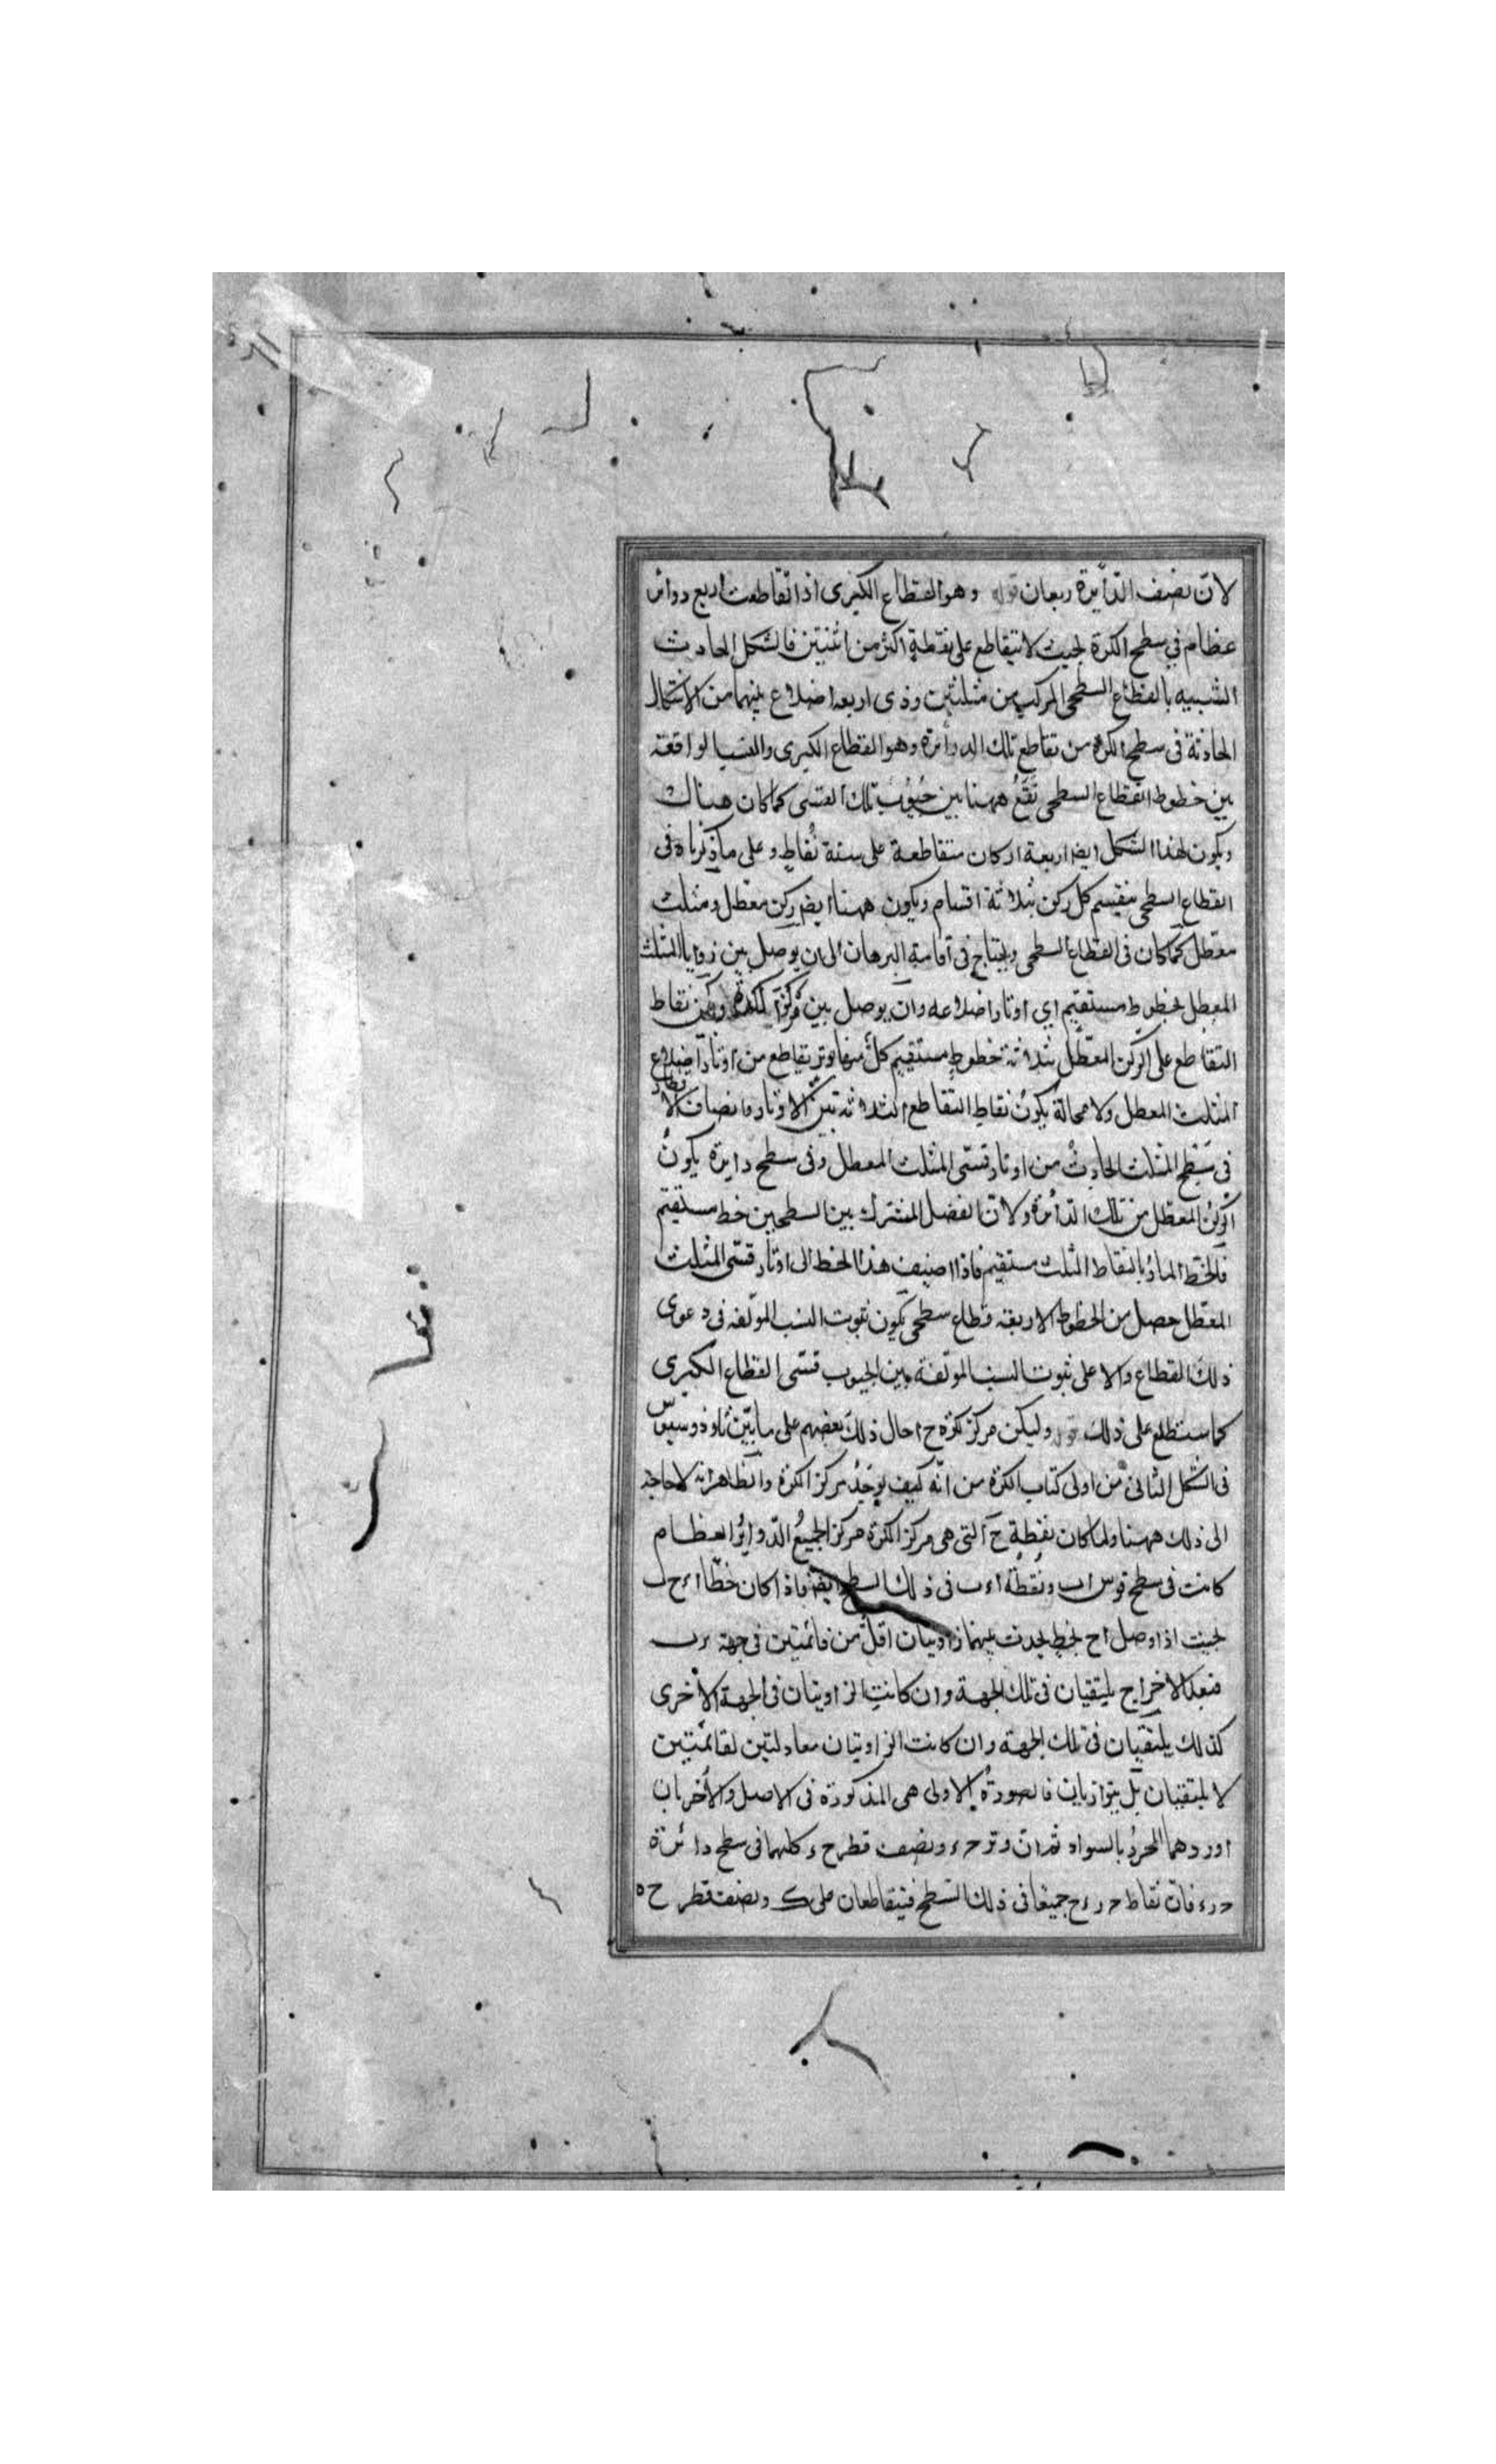 لانّ نصف الدّايرة ربعان قوله وهو القطاع الكبرى اذا تقاطعت اربع دوائر
عظام فى سطح الكرة بحيث لا يتقاطع على نقطة اكثر من اثنتين فالشكل الحادث
الشبيه بالقطاع السطحى المركب من مثلثين وذى اربعة اضلاع بينهما من الاشكال
الحادثة فى سطح الكرة من تقاطع تلك الدوائرة وهو القطاع الكبرى والنسب الواقعة
بين خطوط القطاع السطحى تقع ههنا بين جيوب تلك القسى كما كان هناك
ويكون لهذا الشكل ايضا اربعة اركان متقاطعة على ستة نقاط وعلى ما ذكرناه فى
القطاع السطحى ينقسم كل ركن بثلاثة اقسام ويكون ههنا ايضا ركن معطل ومثلث
معطل كما كان فى القطاع السطحى ويحتاج فى اقامة البرهان الى ان يوصل بين زوايا المثلث
المعطل بخطوط مستقيم اى اوتار اضلاعه وان يوصل بين مركز الكرة وبين نقاط
التقاطع على الركن المعطّل بثلاثة خطوط مستقيم كلّ منها وتر يقاطع من اوتار اضلاع
المثلث المعطل ولا محالة يكون نقاط التقاطع الثلاثة بين الاوتار وانصاف الاقطار
فى سطح المثلث الحادث من اوتار قسّى المثلث المعطل وفى سطح دايرة يكون
الركن المعطل من تلك الدّائرة ولانّ الفصل المشترك بين السطحين خط مستقيم
فالخط المارّ بالنقاط الثلث مستقيم فاذا اضيف هذا الخط الى اوتار قسّى المثلث
المعطّل حصل من الخطوط الاربعة قطاع سطحى يكون ثبوت النسب المؤلفة فى دعوى
ذلك القطاع دالا على ثبوت النسب المؤلفة بين الجيوب قسّى القطاع الكبرى
كما ستطلع على ذلك قوله وليكن مركز كرة ح احال ذلك بعضهم على ما بيّن ثاوذوسيوس
فى الشكل الثانى من اولى كتاب الكرة من انّه كيف يوجد مركز الكرة والظاهر انه لا حاجة
الى ذلك ههنا ولما كان نقطة ح التى هى مركز الكرة مركز الجميع الدّوائر العظام
كانت فى سطح قوس اب ونقطة اء ب فى ذلك السطح ايضا فاذا كان خطّا اء ح ب
بحيث اذا وصل اح بخط يحدث بينهما زاويتان اقلّ من قائمتين فى جهة ء ب
فبعد الاخراج يلتقيان فى تلك الجهة وان كانت الزاويتان فى الجهة الاخرى
كذلك يلتقيان فى تلك الجهة وان كانت الزاويتان معادلتين لقائمتين
لا يلتقيان بل يتوازيان فالصورة الاولى هى المذكورة فى الاصل والاخريان
اوردهما المحرر بالسواد ثم ان وتر حء ونصف قطر ح ء كلهما فى سطح دائرة
ح ر ء فانّ نقاط ح ر ء ح جميعا فى ذلك السّطح فيتقاطعان على ك ونصف قطر ح ه